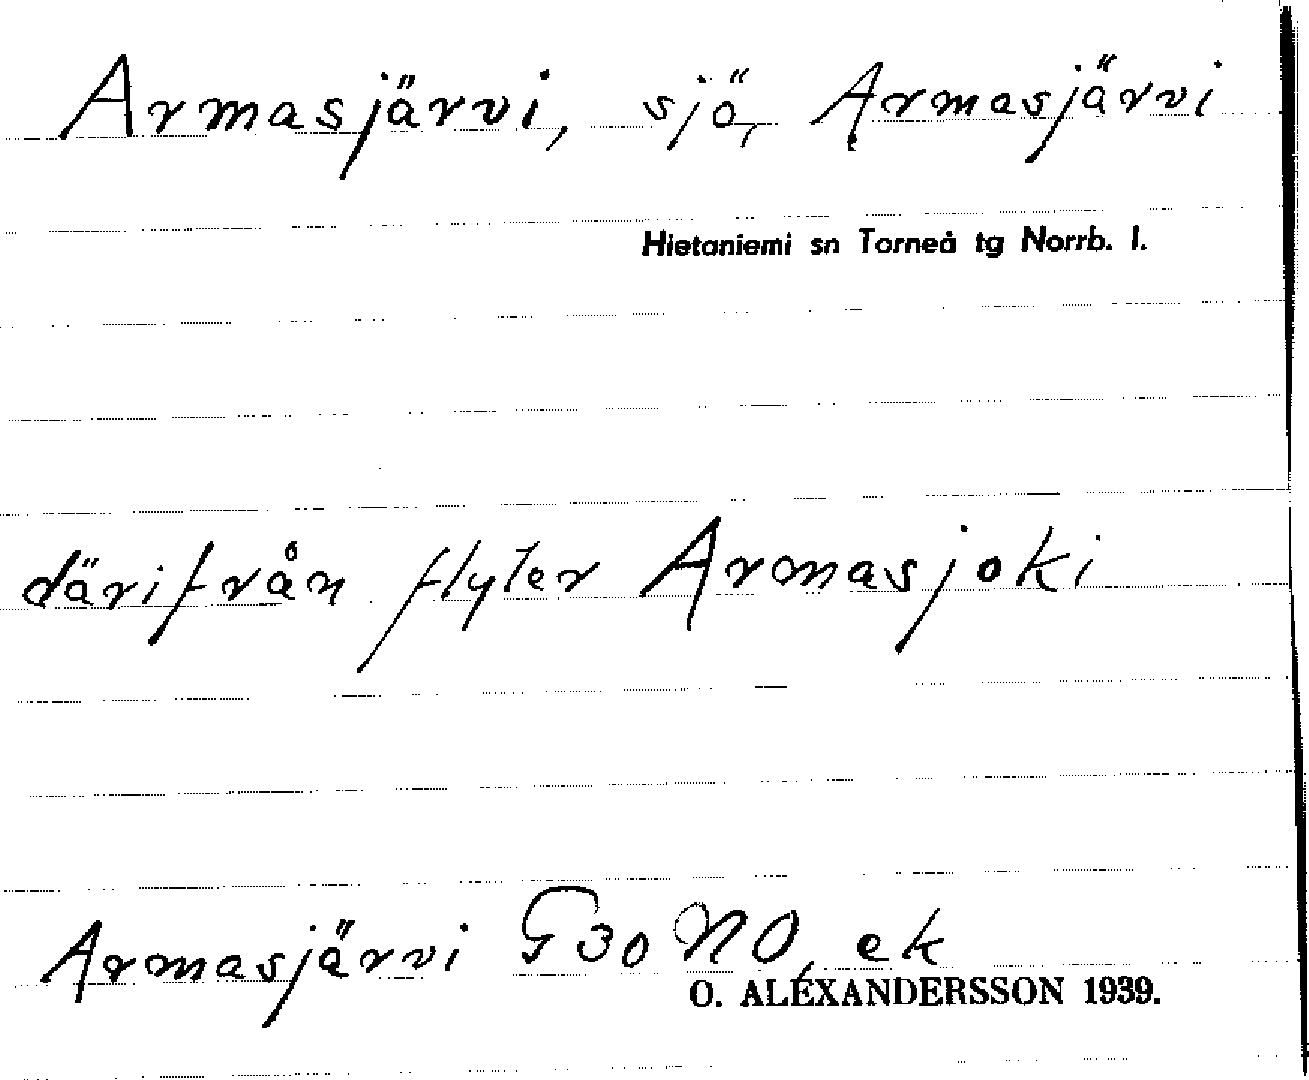 Armasjärvi, sjö, Armasjärvi
Hietaniemi sn Torneå tg Norrb. l.
därifrån flyter Armasjoki
Armasjärvi G30 NO, ek
O. ALEXANDERSSON 1939.